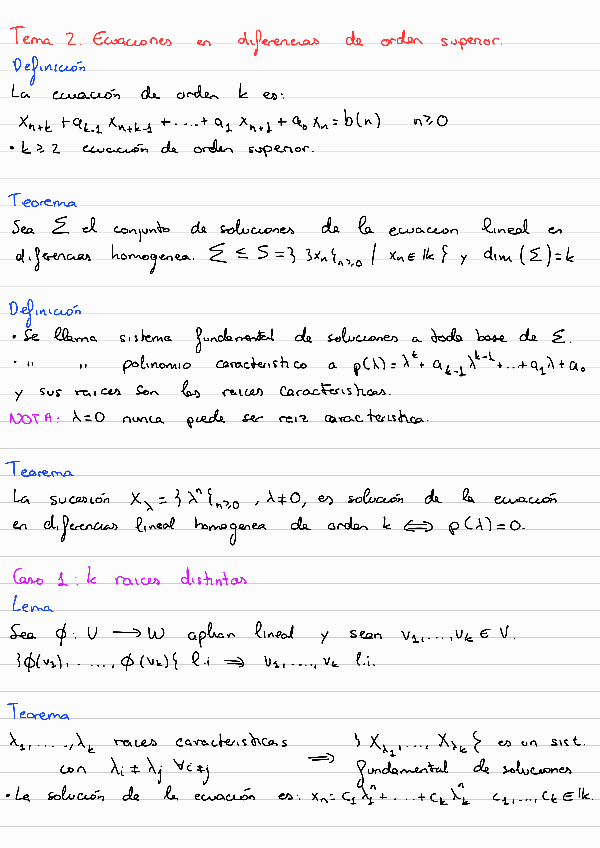 Tema 2. Ecuaciones en diferencias de orden superior.
Definición
La ecuación de orden k es:
xₙ₊ₖ + aₖ₋₁ xₙ₊ₖ₋₁ + .... + a₁ xₙ₊₁ + a₀ xₙ = b(n) n ≥ 0
• k ≥ 2 ecuación de orden superior.
Teorema
Sea Σ el conjunto de soluciones de la ecuacion lineal en
diferencias homogenea. Σ ≤ S = } }xₙ{ₙ≥₀ / xₙ ∈ lk { y dim (Σ) = k
Definición
• Se llama sistema fundamental de soluciones a toda base de Σ.
• " " polinomio caracteristico a p(λ) = λᵏ + aₖ₋₁ λᵏ⁻¹ + ... + a₁ λ + a₀
y sus raices son las raices caracteristicas.
NOTA: λ=0 nunca puede ser raiz caracteristica.
Teorema
La sucesión X_λ = } λⁿ {ₙ≥₀ , λ ≠ 0, es solución de la ecuación
en diferencias lineal homogenea de orden k ⟺ p(λ) = 0.
Caso 1: k raices distintas
Lema
Sea ϕ: U → W aplican lineal y sean v₁, ..., vₖ ∈ V.
}ϕ(v₁), ...., ϕ(vₖ){ l.i ⇒ v₁, ...., vₖ l.i.
Teorema
λ₁, ...., λₖ raices caracteristicas ⇒ } X_λ₁, ..., X_λₖ { es un sist.
con λᵢ ≠ λⱼ ∀i≠j fundamental de soluciones
• La solución de la ecuación es: xₙ = c₁ λ₁ⁿ + ... + cₖ λₖⁿ c₁, ..., cₖ ∈ lk.